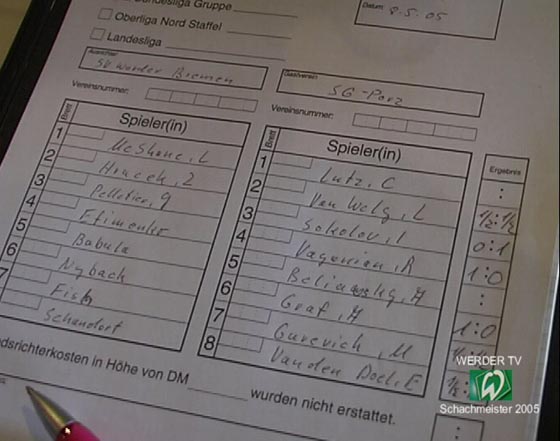 Bundesliga Gruppe
Oberliga Nord Staffel
Landesliga
Datum: 8.5.05
Ausrichter
SV Werder Bremen
Gastverein
SG-Porz
Vereinsnummer:
Vereinsnummer:
Brett Spieler(in)
1 McShane, L
2 Hracek, Z
3 Pelletier, Y
4 Efimenko
5 Babula
6 Nyback
7 Fish
Schandorf
Brett Spieler(in) Ergebnis
1 Lutz, C :
2 Van Wely, L ½:½
3 Sokolov, I 0:1
4 Vaganian, R 1:0
5 Beliavsky, A :
6 Graf, A 1:0
7 Gurevich, M
8 Van den Doel, E ½:
dsrichterkosten in Höhe von DM wurden nicht erstattet.
WERDER TV
W
Schachmeister 2005